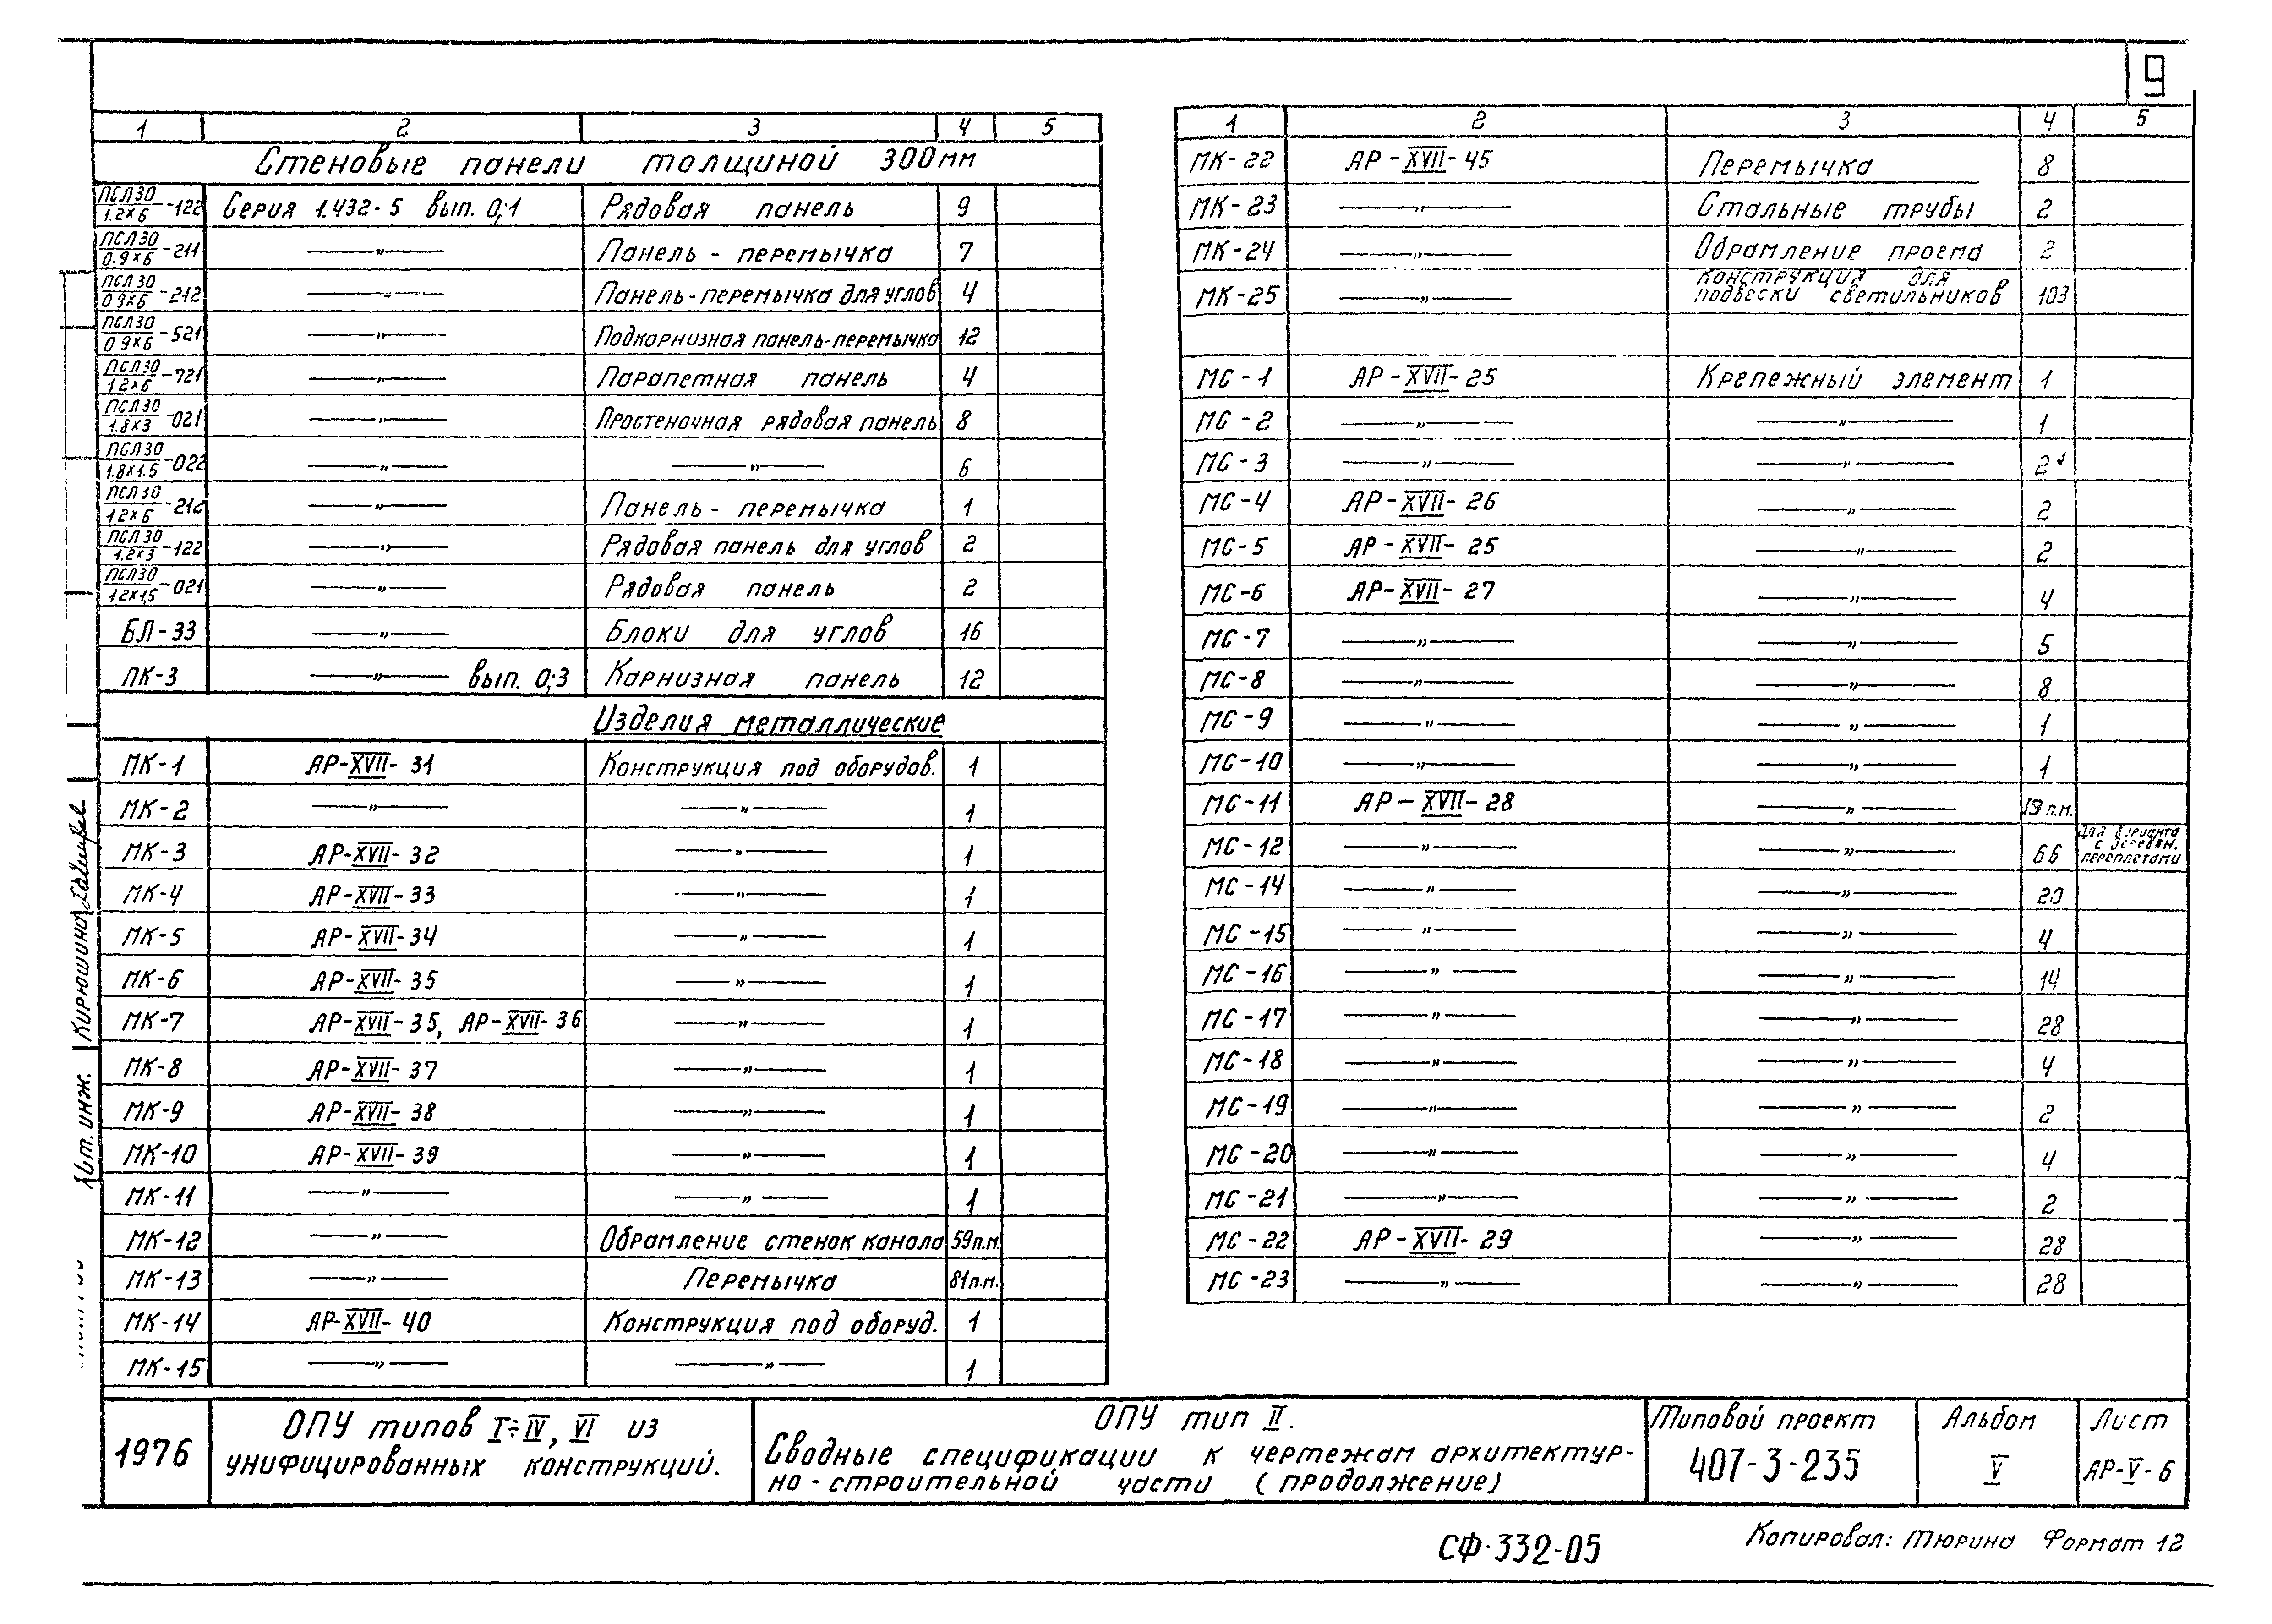 9
1 2 3 4 5
Стеновые панели толщиной 300мм
ПСЛ30/1.2×6 -122 Серия 1.432-5 вып. 0;1 Рядовая панель 9
ПСЛ30/0.9×6 -211 —„— Панель - перемычка 7
ПСЛ30/0.9×6 -212 —„— Панель-перемычка для углов 4
ПСЛ30/0.9×6 -521 —„— Подкарнизная панель-перемычка 12
ПСЛ30/1.2×6 -721 —„— Парапетная панель 4
ПСЛ30/1.8×3 -021 —„— Простеночная рядовая панель 8
ПСЛ30/1.8×1.5 -022 —„— —„— 6
ПСЛ30/1.2×6 -212 —„— Панель - перемычка 1
ПСЛ30/1.2×3 -122 —„— Рядовая панель для углов 2
ПСЛ30/1.2×1,5 -021 —„— Рядовая панель 2
БЛ-33 —„— Блоки для углов 16
ПК-3 —„— вып. 0;3 Карнизная панель 12
Изделия металлические
МК-1 АР-XVII-31 Конструкция под оборудов. 1
МК-2 —„— —„— 1
МК-3 АР-XVII-32 —„— 1
МК-4 АР-XVII-33 —„— 1
МК-5 АР-XVII-34 —„— 1
МК-6 АР-XVII-35 —„— 1
МК-7 АР-XVII-35, АР-XVII-36 —„— 1
МК-8 АР-XVII-37 —„— 1
МК-9 АР-XVII-38 —„— 1
МК-10 АР-XVII-39 —„— 1
МК-11 —„— —„— 1
МК-12 —„— Обрамление стенок канала 59п.м.
МК-13 —„— Перемычка 81п.м.
МК-14 АР-XVII-40 Конструкция под оборуд. 1
МК-15 —„— —„— 1
1 2 3 4 5
МК-22 АР-XVII-45 Перемычка 8
МК-23 —„— Стальные трубы 2
МК-24 —„— Обрамление проема 2
МК-25 —„— Конструкция для подвески светильников 103
МС-1 АР-XVII-25 Крепежный элемент 1
МС-2 —„— —„— 1
МС-3 —„— —„— 2
МС-4 АР-XVII-26 —„— 2
МС-5 АР-XVII-25 —„— 2
МС-6 АР-XVII-27 —„— 4
МС-7 —„— —„— 5
МС-8 —„— —„— 8
МС-9 —„— —„— 1
МС-10 —„— —„— 1
МС-11 АР-XVII-28 —„— 19п.м.
МС-12 —„— —„— 66 Для варианта с деревян. переплетами
МС-14 —„— —„— 20
МС-15 —„— —„— 4
МС-16 —„— —„— 14
МС-17 —„— —„— 28
МС-18 —„— —„— 4
МС-19 —„— —„— 2
МС-20 —„— —„— 4
МС-21 —„— —„— 2
МС-22 АР-XVII-29 —„— 28
МС-23 —„— —„— 28
инж. Кирюшина
1976
ОПУ типов I÷IV, VI из
унифицированных конструкций.
ОПУ тип II.
Сводные спецификации к чертежам архитектур-
но-строительной части (продолжение)
Типовой проект
407-3-235
Альбом
V
Лист
АР-V-6
СФ-332-05
Копировал: Тюрина Формат 12